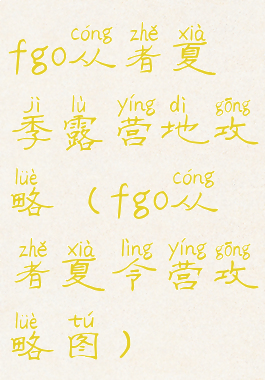 cóng zhě xià
fgo从者夏
jì lù yíng dì gōng
季露营地攻
lüè cóng
略（fgo从
zhě xià lìng yíng gōng
者夏令营攻
lüè tú
略图）